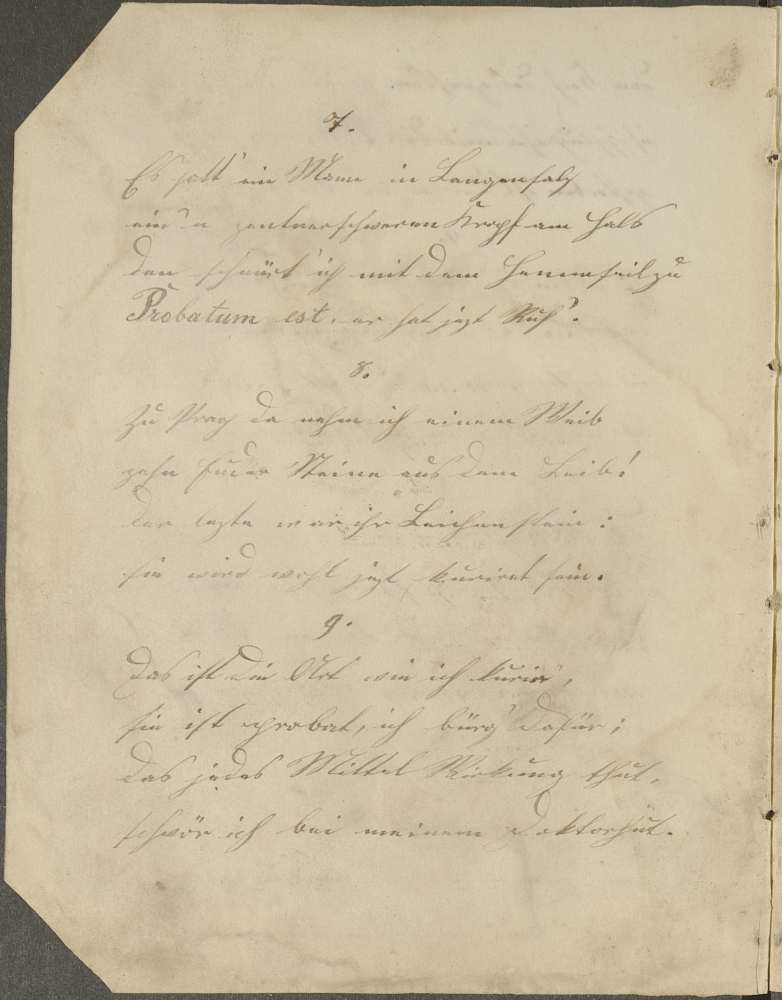 7.
Es hatt' ein Mann in Langensalz
ein'n zentnerschweren Kropf am Hals
den schnürt' ich mit dem Hemmseil zu
Probatum est, er hat jezt Ruh'.
8.
Zu Prag da nahm ich einem Weib
zehn Fuder Steine aus dem Leib!
der lezte war ihr Leichenstein:
sie wird wohl jezt kurirt sein.
9.
Das ist die Art wie ich kurir',
sie ist probat, ich bürg' dafür;
das jedes Mittel Wirkung thut,
schwör ich bei meinem Doktorhut.